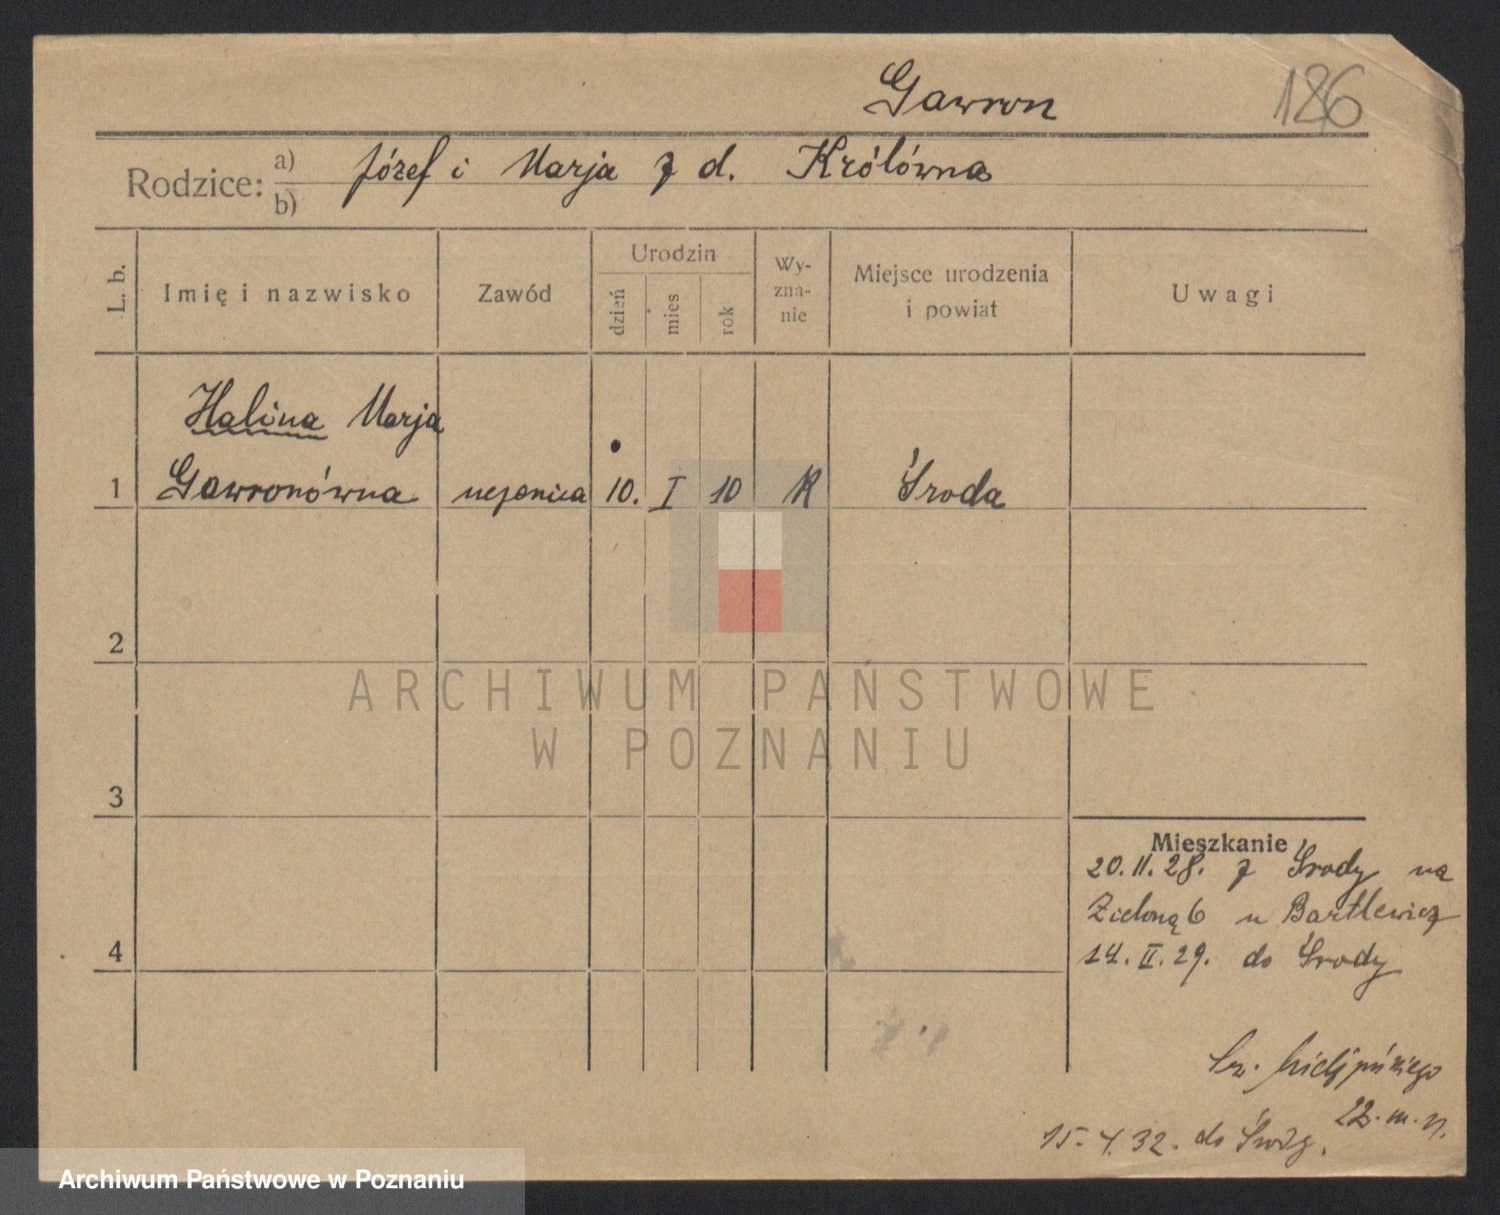 Gawron
186
Rodzice: a) Józef i Marja z d. Królówna
b)
L. b.
Imię i nazwisko
Zawód
Urodzin
dzień
mies
rok
Wy-
zna-
nie
Miejsce urodzenia
i powiat
Uwagi
Halina Marja
1 Gawronówna uczenica 10. I 10 R Środa
2
3
4
Mieszkanie
20.II.28. z Środy na
Zieloną 6 u Bartlewicz
14.II.29. do Środy
22. m. n.
15. 4. 32. do Środy.
ARCHIWUM PAŃSTWOWE
W POZNANIU
Archiwum Państwowe w Poznaniu